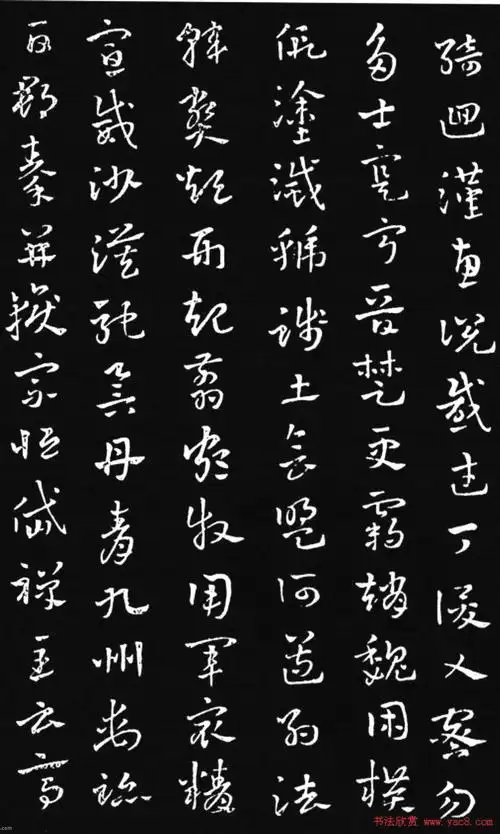 綺迴漢惠說感武丁俊乂密勿
多士寔寧晉楚更霸趙魏困橫
假塗滅虢踐土會盟何遵約法
韓弊煩刑起翦頗牧用軍最精
宣威沙漠馳譽丹青九州禹跡
百郡秦并嶽宗恒岱禪主云亭
书法欣赏 www.yac8.com
.com